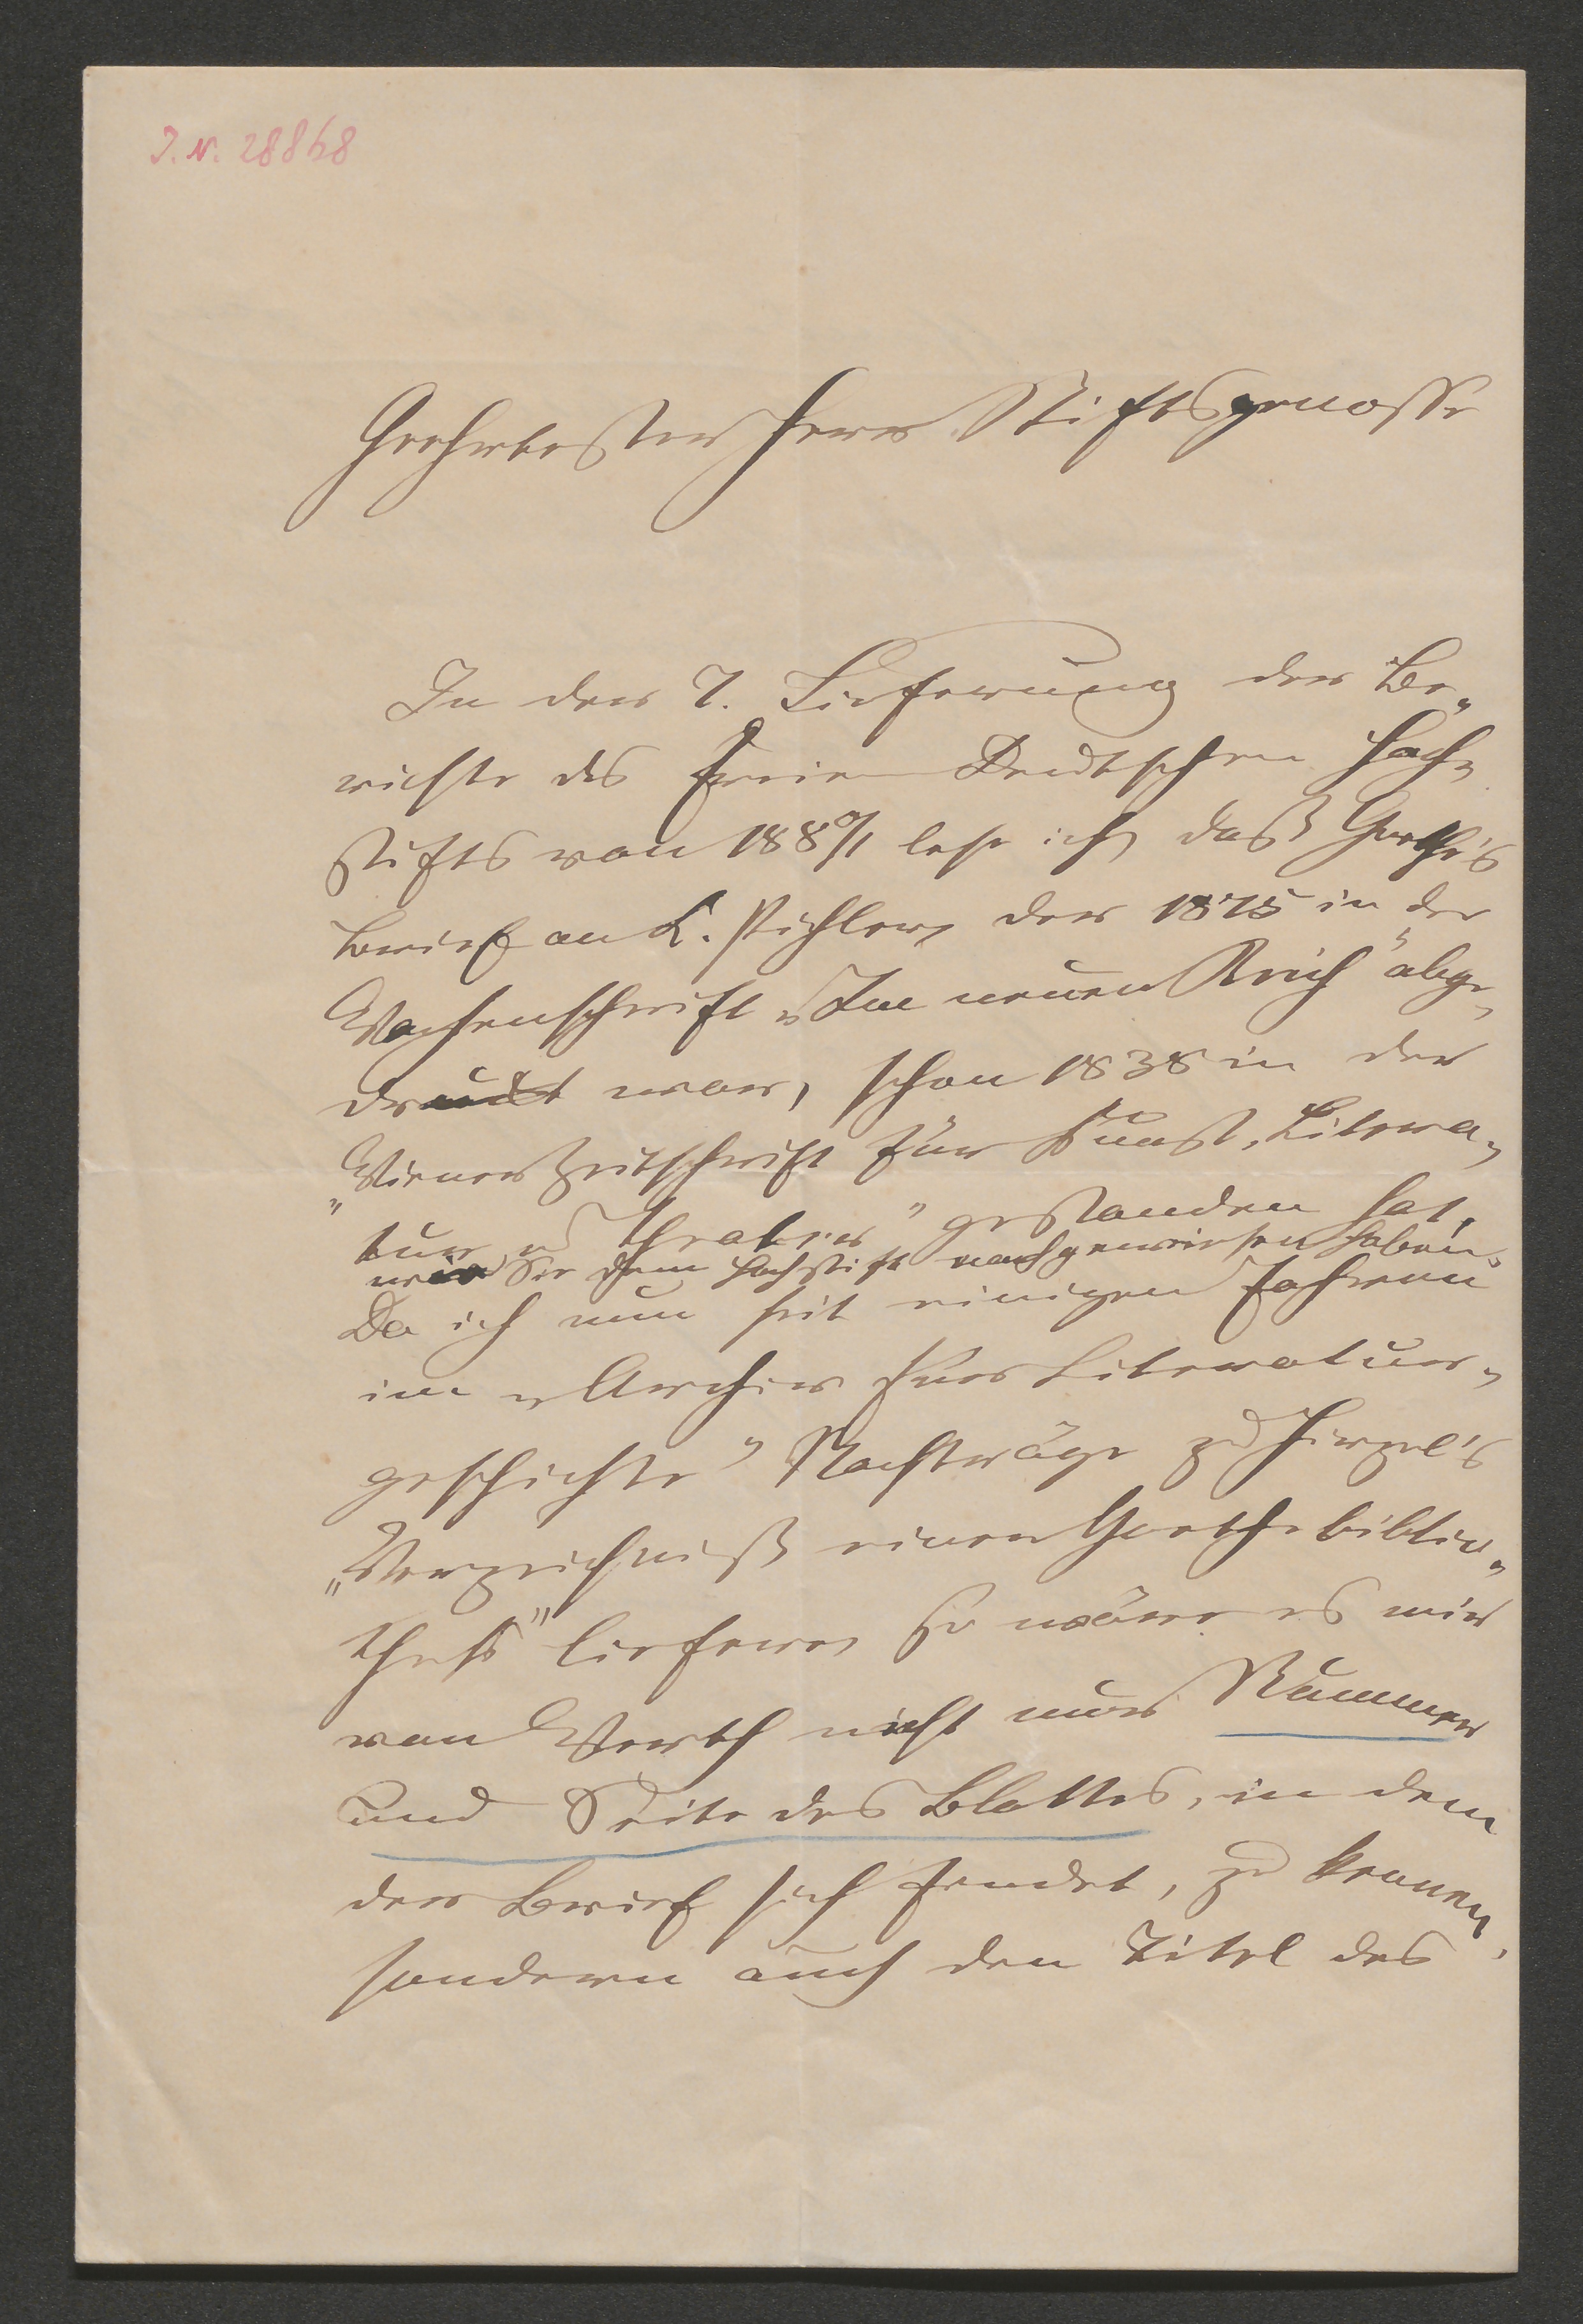 I. N. 28868
Geehrtester Herr Stiftsgenosse
In der 7. Lieferung der Be-
richte des Freien Deutschen Hoch-
stifts von 1880/1 lese ich, daß Goethe's
Brief an C. Pichler, der 1875 in der
Wochenschrift „Im neuen Reich" abge-
druckt war, schon 1838 in der
„Wiener Zeitschrift für Kunst, Litera-
tur u Theater" gestanden hat,
wie Sie dem Hochstift nachgewiesen haben.
Da ich nun seit einigen Jahren
im „Archiv für Literatur-
geschichte" Nachträge zu Hirzel's
„Verzeichniß einer Goethebiblio-
thek" liefere, so wäre es mir
von Werth nicht nur Nummer
und Seite des Blattes, in dem
der Brief sich findet, zu kennen,
sondern auch den Titel des